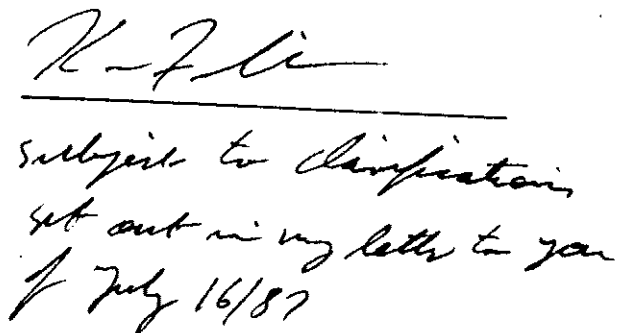 subject to clarifications
set out in my letter to you
of July 16/87